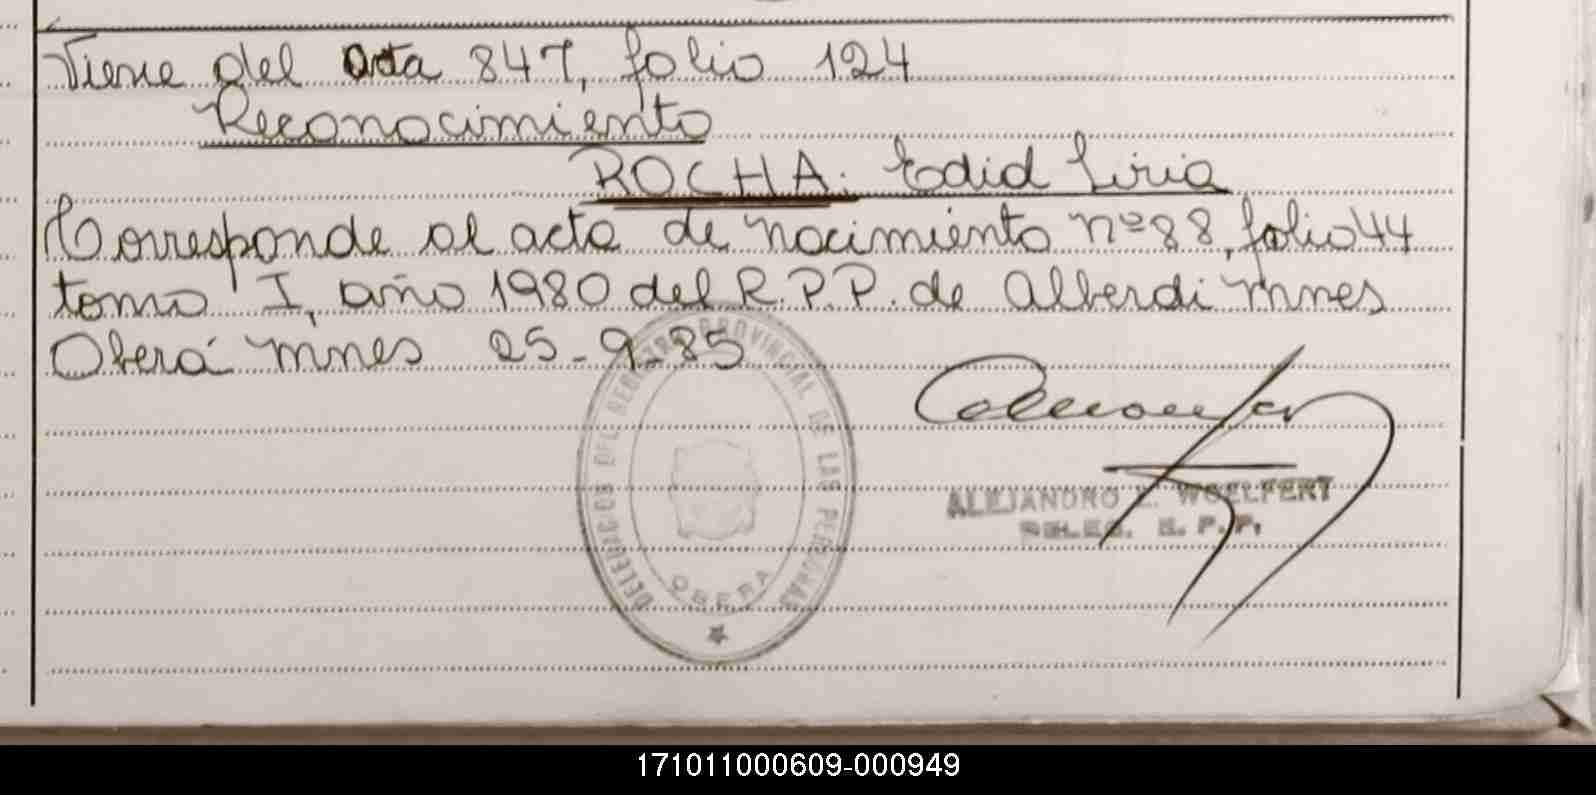 Viene del acta 847, folio 124
Reconocimiento
ROCHA. Edid Liria
Corresponde al acta de nacimiento nº 88, folio 44
tomo I, año 1980 del R.P.P. de Alberdi Mnes
Oberá Mnes 25-9-85
DELEGACION DEL REGISTRO PROVINCIAL DE LAS PERSONAS
OBERA
ALEJANDRO E. WOELFERT
R. P. P.
171011000609-000949